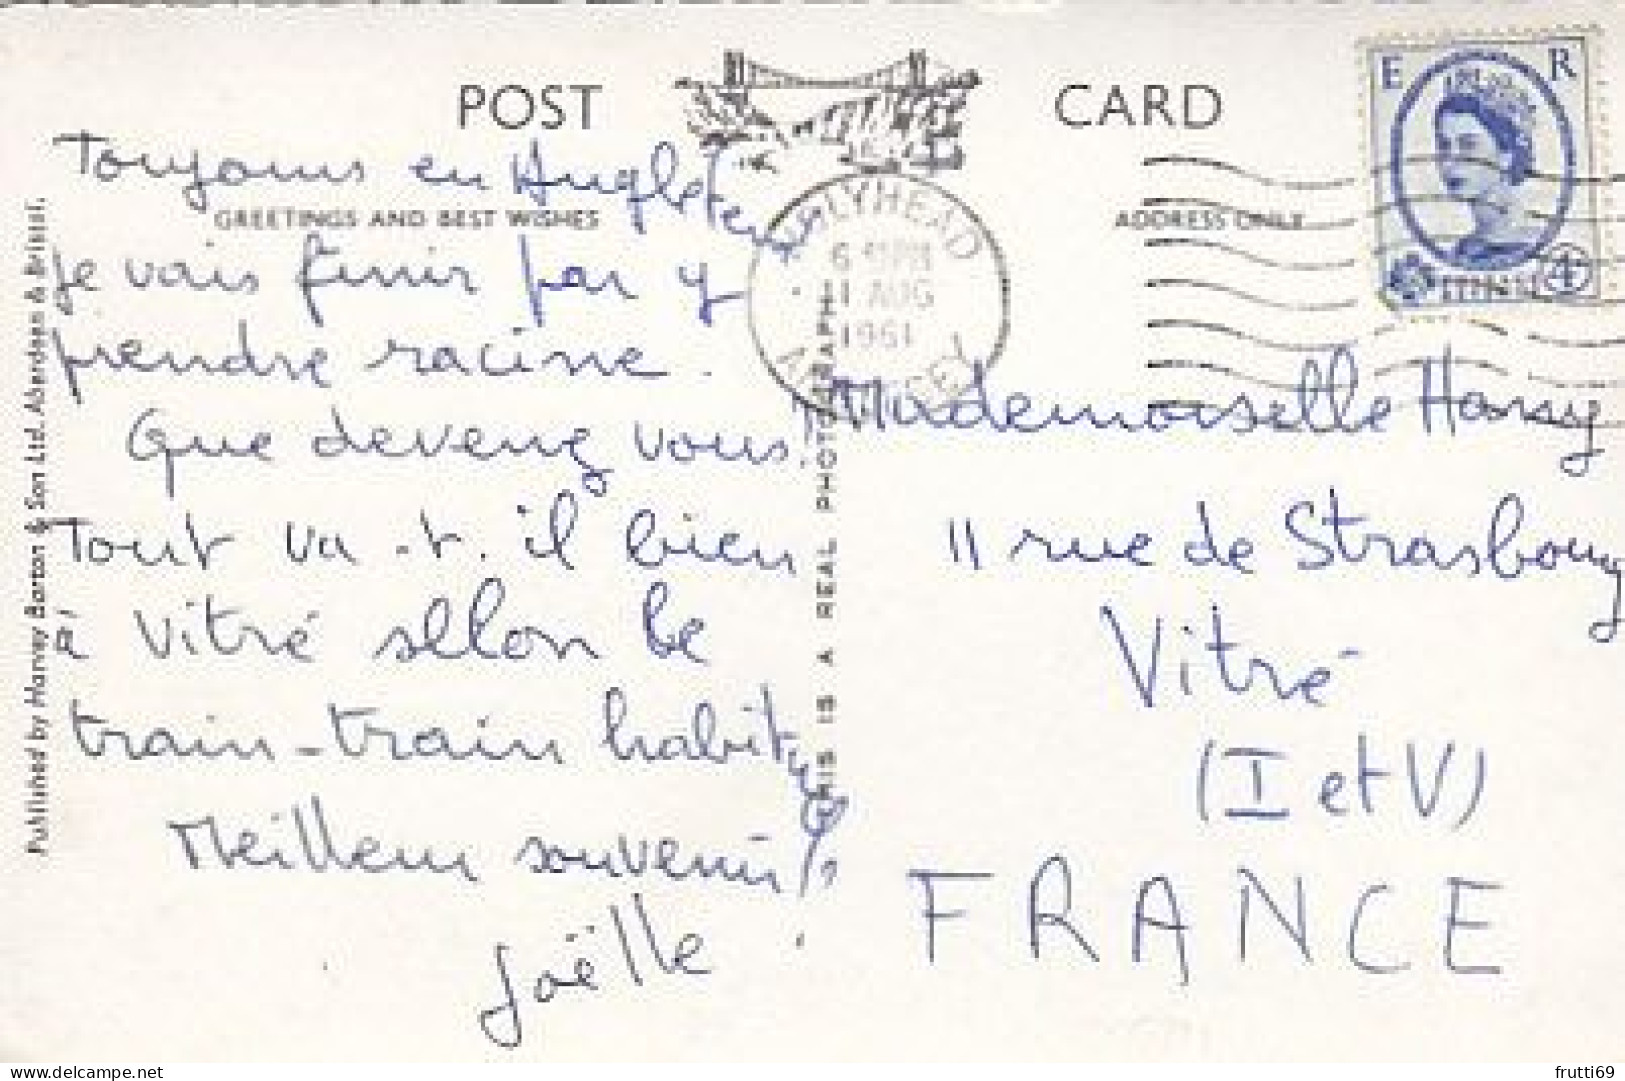 POST CARD
GREETINGS AND BEST WISHES
ADDRESS ONLY
E R
POSTAGE 4D
HOLYHEAD
6 PM
1 AUG
1961
ANGLESEY
Toujours en Angleterre
je vais finir par y
prendre racine.
Que devenez vous?
Tout va-t-il bien
à Vitré sellon le
train-train habituel?
Meilleurs souvenirs
Joëlle
Mademoiselle
11 rue de Strasbourg
Vitré
(I et V)
FRANCE
Published by Harvey Barton & Son Ltd. Aberdeen & Bristol.
THIS IS A REAL PHOTOGRAPH
delcampe.net
frutti69